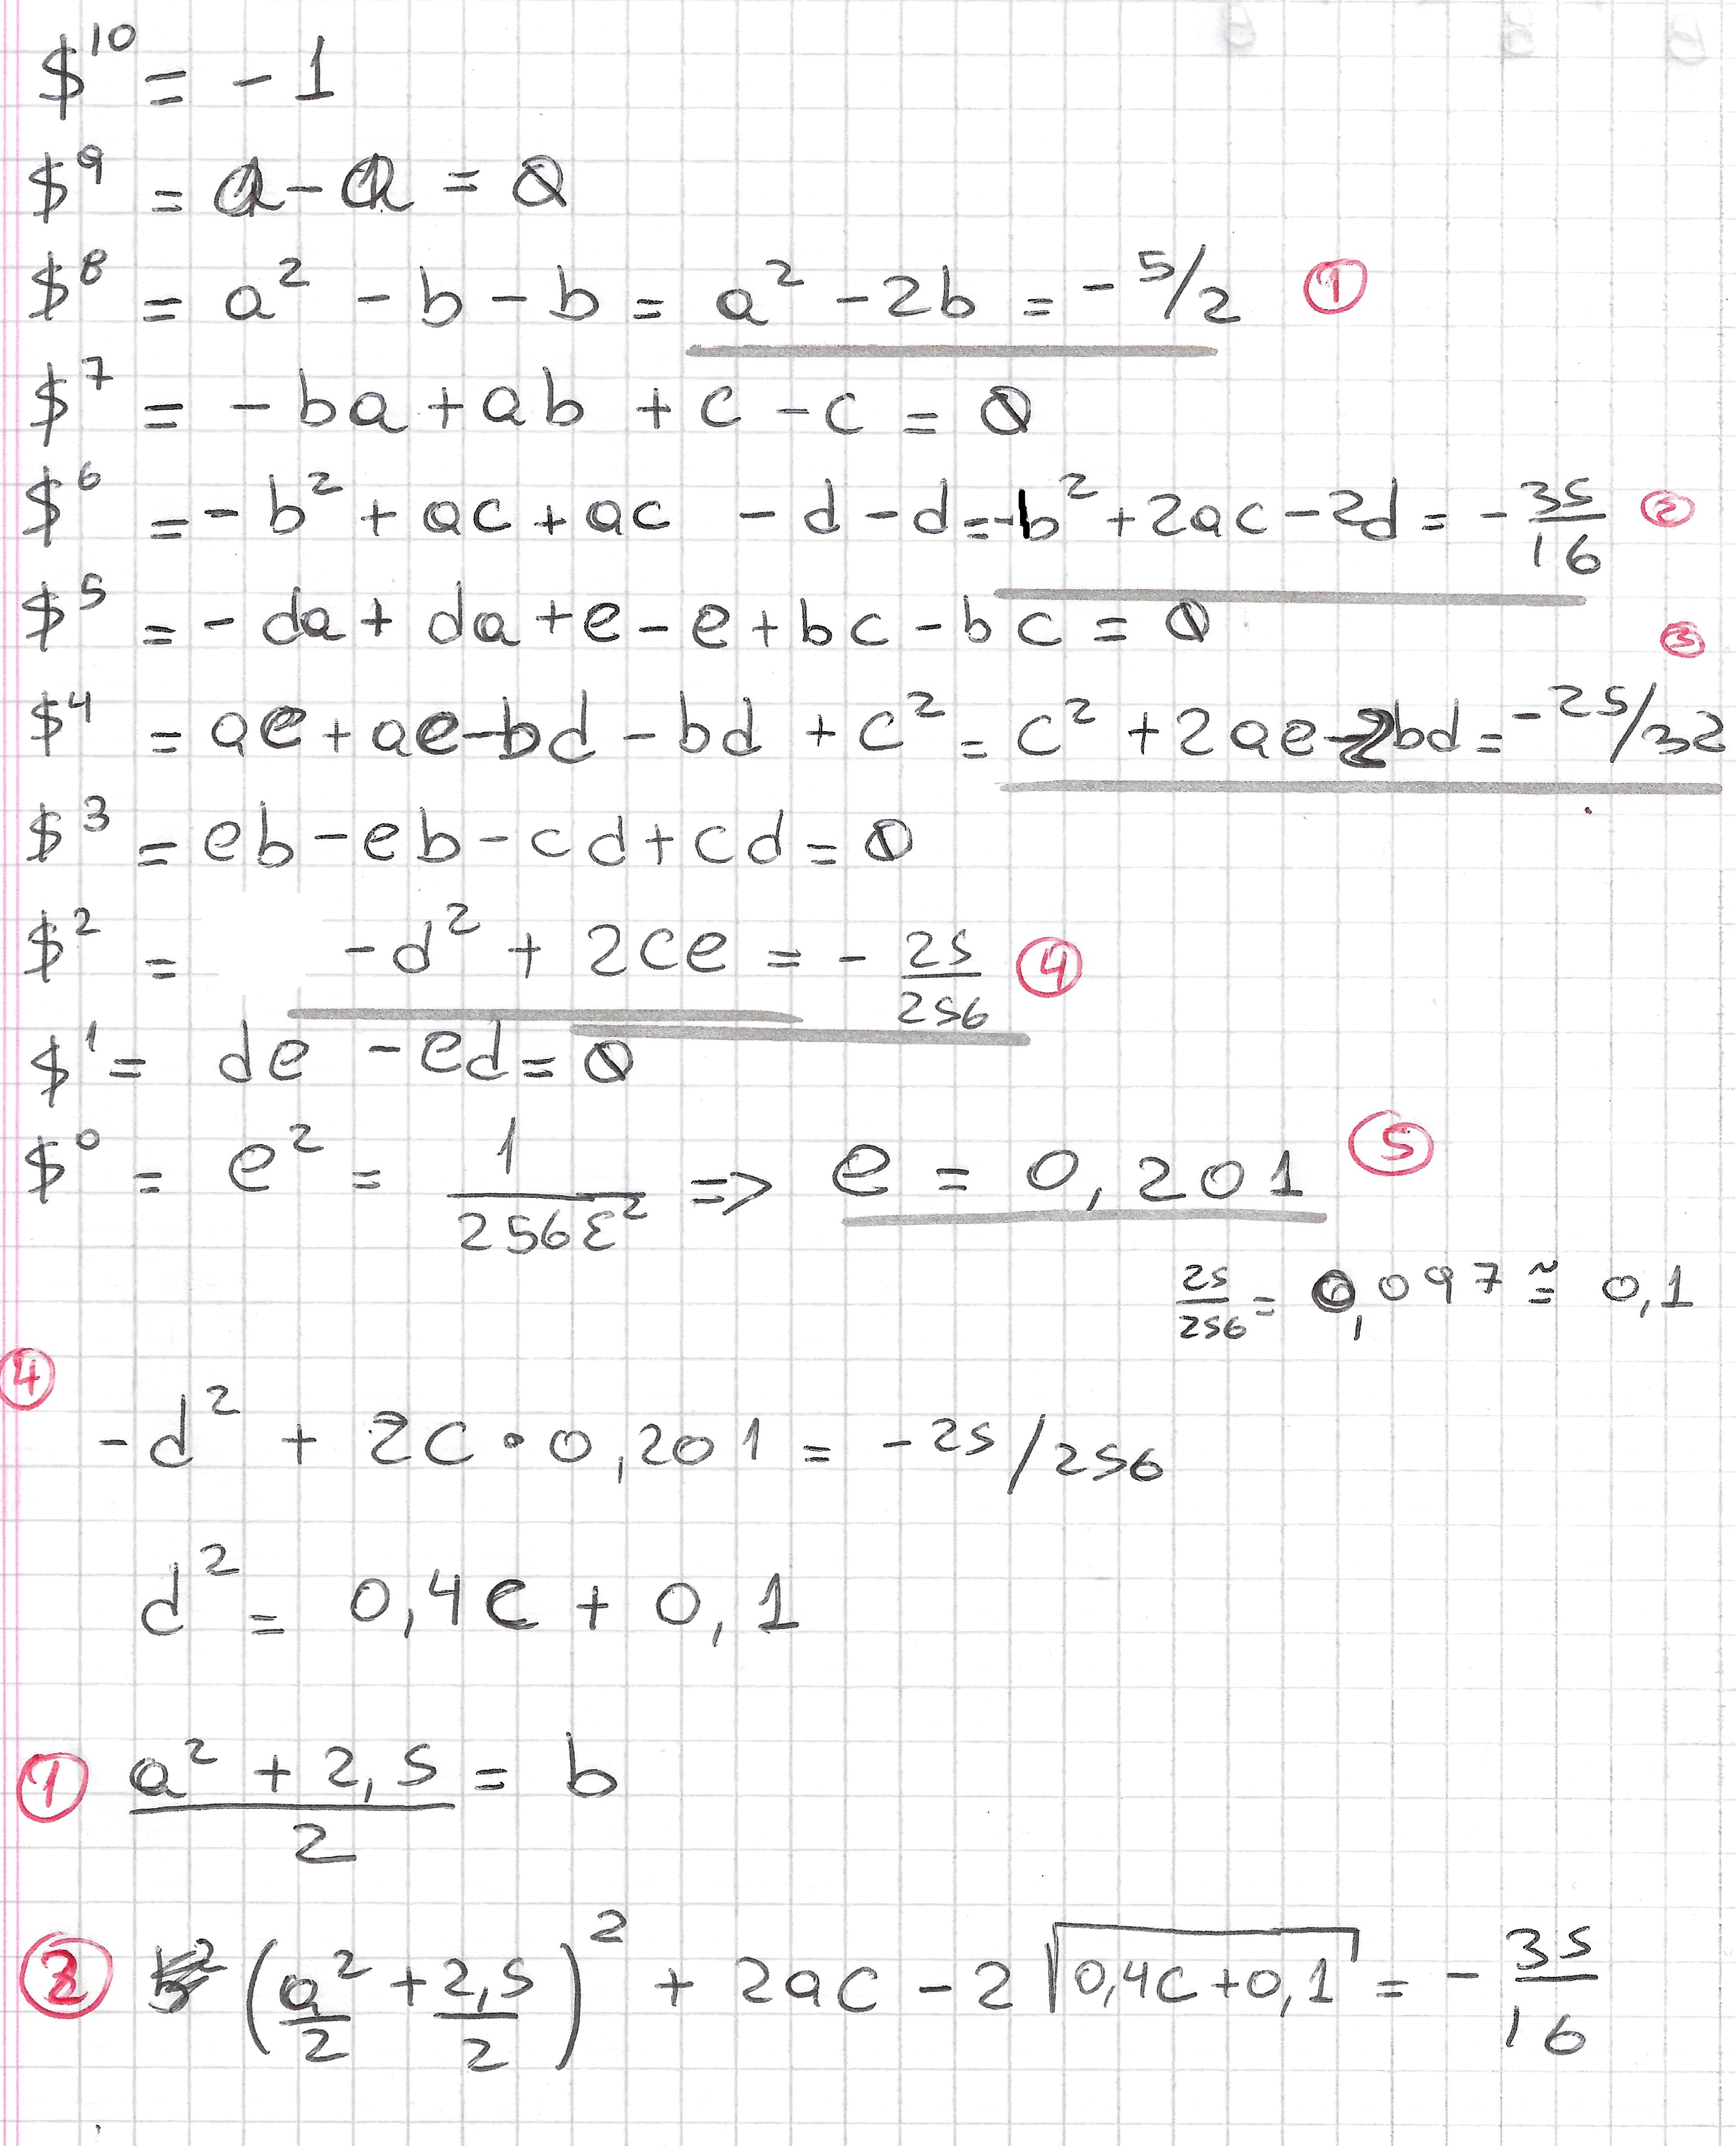 $¹⁰ = -1
$⁹ = a - a = 0
$⁸ = a² - b - b = a² - 2b = -5/2 ①
$⁷ = -ba + ab + c - c = 0
$⁶ = -b² + ac + ac - d - d = -b² + 2ac - 2d = -35/16 ②
$⁵ = -da + da + e - e + bc - bc = 0
③
$⁴ = ae + ae - bd - bd + c² = c² + 2ae - 2bd = -25/32
$³ = eb - eb - cd + cd = 0
$² = -d² + 2ce = -25/256 ④
$¹ = de - ed = 0
$⁰ = e² = 1/256ε² => e = 0,201 ⑤
25/256 = 0,097 ≅ 0,1
④
-d² + 2c • 0,201 = -25/256
d² = 0,4c + 0,1
① a² + 2,5/2 = b
② (a²/2 + 2,5/2)² + 2ac - 2√0,4c+0,1 = -35/16